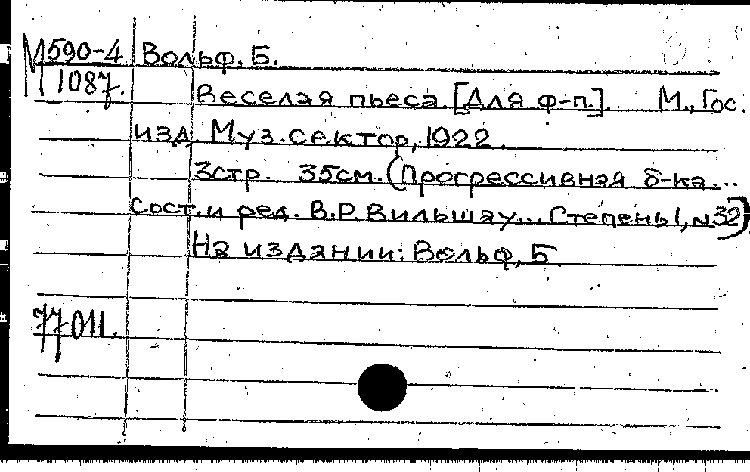 М590-4 Вольф, Б.
1087. Веселая пьеса [Для ф-п.]. М., Гос.
изд. Муз. сектор, 1922.
3стр. 35см. (Прогрессивная б-ка...
Сост. и ред. В.Р. Вильшау... Степень I, № 32)
На издании: Вольф, Б
77011.